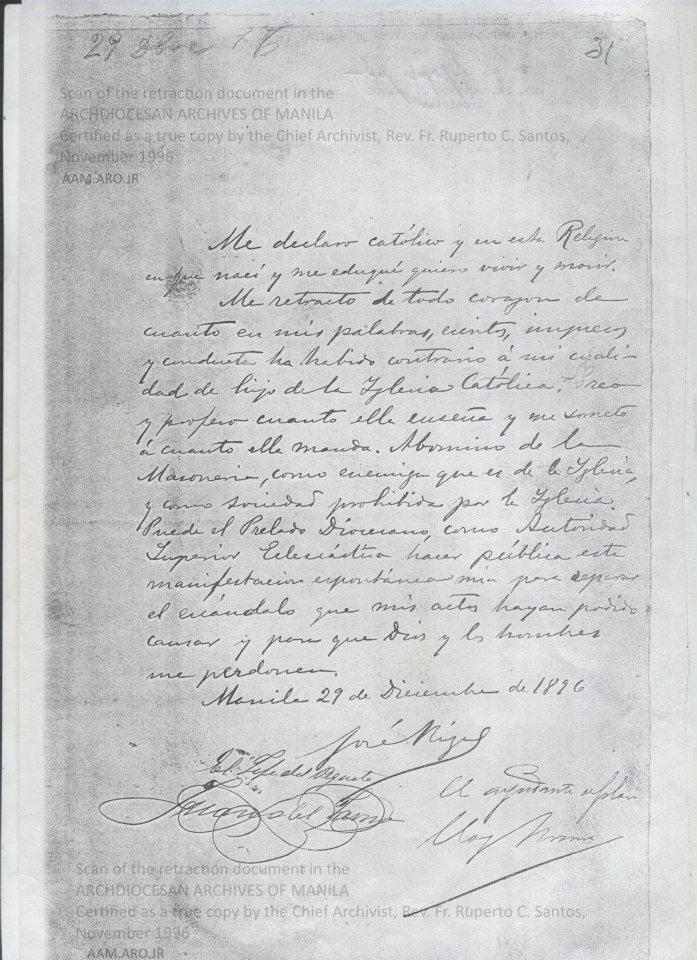 29 16
31
Scan of the retraction document in the
ARCHDIOCESAN ARCHIVES OF MANILA
Certified as a true copy by the Chief Archivist, Rev. Fr. Ruperto C. Santos,
November 1996
AAM.ARO.JR
Me declaro católico y en esta Religion
en que nací y me eduqué quiero vivir y morir.
Me retracto de todo corazon de
cuanto en mis palabras, escritos, impresos
y conducta ha habido contrario á mi cuali-
dad de hijo de la Iglesia Católica. Creo
y profeso cuanto ella enseña y me someto
á cuanto ella manda. Abomino de la
Masoneria, como enemiga que es de la Iglesia,
y como sociedad prohibida por la Iglesia.
Puede el Prelado Diocesano, como Autoridad
Superior Eclesiástica hacer pública esta
manifestacion espontánea mia para reparar
el escándalo que mis actos hayan podido
causar y para que Dios y los hombres
me perdonen.
Manila 29 de Diciembre de 1896
José Rizal
El Jefe del Piquete
Juan del Fresno
El ayudante de Plaza
Eloy Moure
Scan of the retraction document in the
ARCHDIOCESAN ARCHIVES OF MANILA
Certified as a true copy by the Chief Archivist, Rev. Fr. Ruperto C. Santos,
November 1996
AAM.ARO.JR